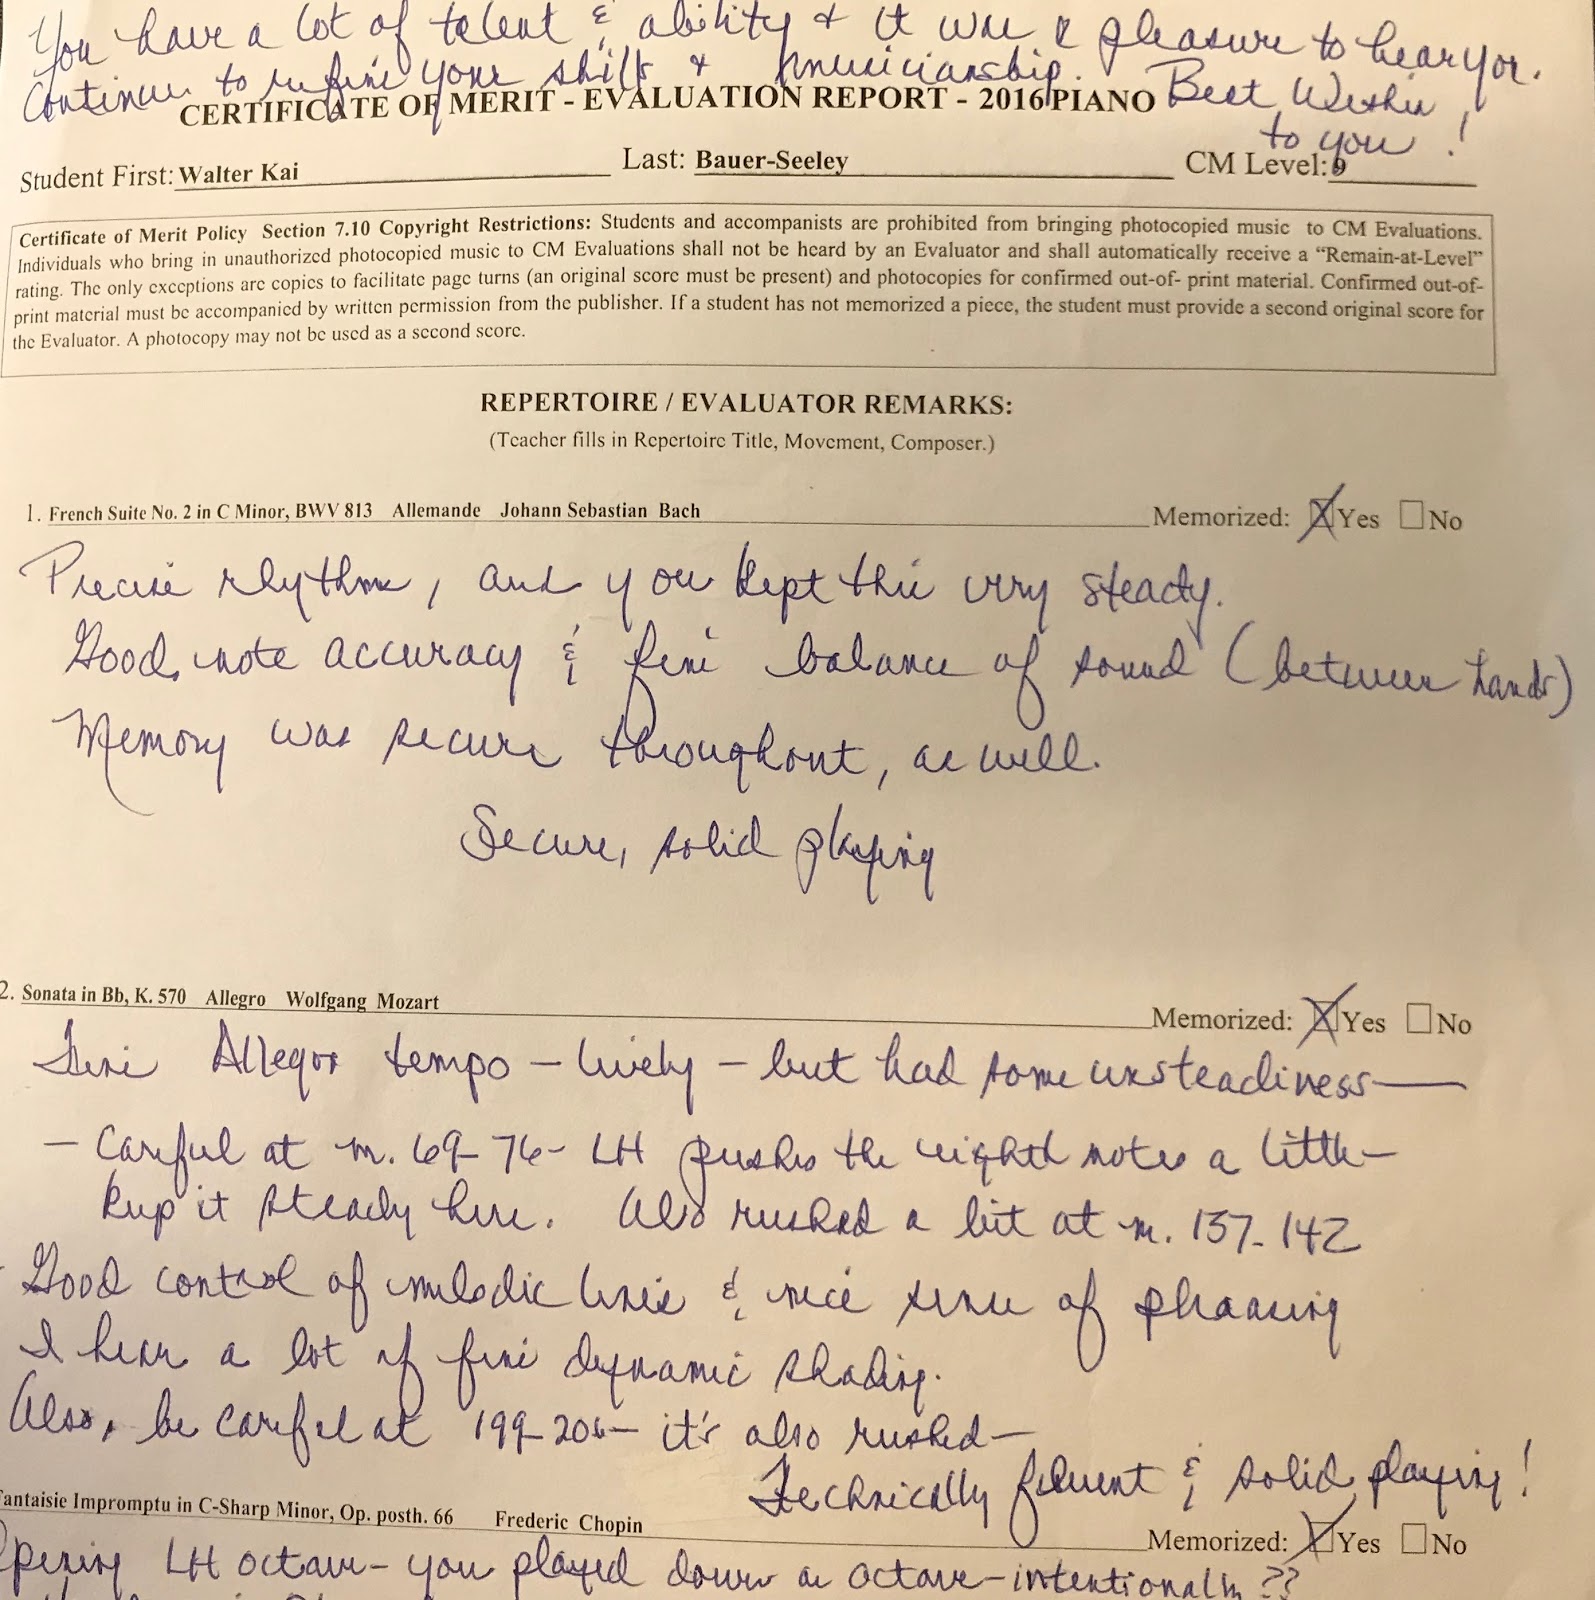 You have a lot of talent & ability & it was a pleasure to hear you.
Continue to refine your skills & musicianship. Best Wishes
to you!
CERTIFICATE OF MERIT - EVALUATION REPORT - 2016 PIANO
Student First: Walter Kai Last: Bauer-Seeley CM Level: 9
Certificate of Merit Policy Section 7.10 Copyright Restrictions: Students and accompanists are prohibited from bringing photocopied music to CM Evaluations.
Individuals who bring in unauthorized photocopied music to CM Evaluations shall not be heard by an Evaluator and shall automatically receive a “Remain-at-Level”
rating. The only exceptions are copies to facilitate page turns (an original score must be present) and photocopies for confirmed out-of- print material. Confirmed out-of-
print material must be accompanied by written permission from the publisher. If a student has not memorized a piece, the student must provide a second original score for
the Evaluator. A photocopy may not be used as a second score.
REPERTOIRE / EVALUATOR REMARKS:
(Teacher fills in Repertoire Title, Movement, Composer.)
1. French Suite No. 2 in C Minor, BWV 813 Allemande Johann Sebastian Bach Memorized: Yes No
Precise rhythms, and you kept this very steady.
Good note accuracy & fine balance of sound (between hands)
Memory was secure throughout, as well.
Secure, solid playing
2. Sonata in Bb, K. 570 Allegro Wolfgang Mozart Memorized: Yes No
Fine Allegor tempo - lively - but had some unsteadiness —
- Careful at m. 69-76- LH pushes the eighth notes a little -
keep it steady here. Also rushed a bit at m. 137-142
- Good control of melodic lines & nice sense of phrasing
I hear a lot of fine dynamic shading.
Also, be careful at 199-206 - it's also rushed -
Technically fluent & solid playing!
antaisie Impromptu in C-Sharp Minor, Op. posth. 66 Frederic Chopin Memorized: Yes No
Opening LH octave - you played down an octave - intentionally??